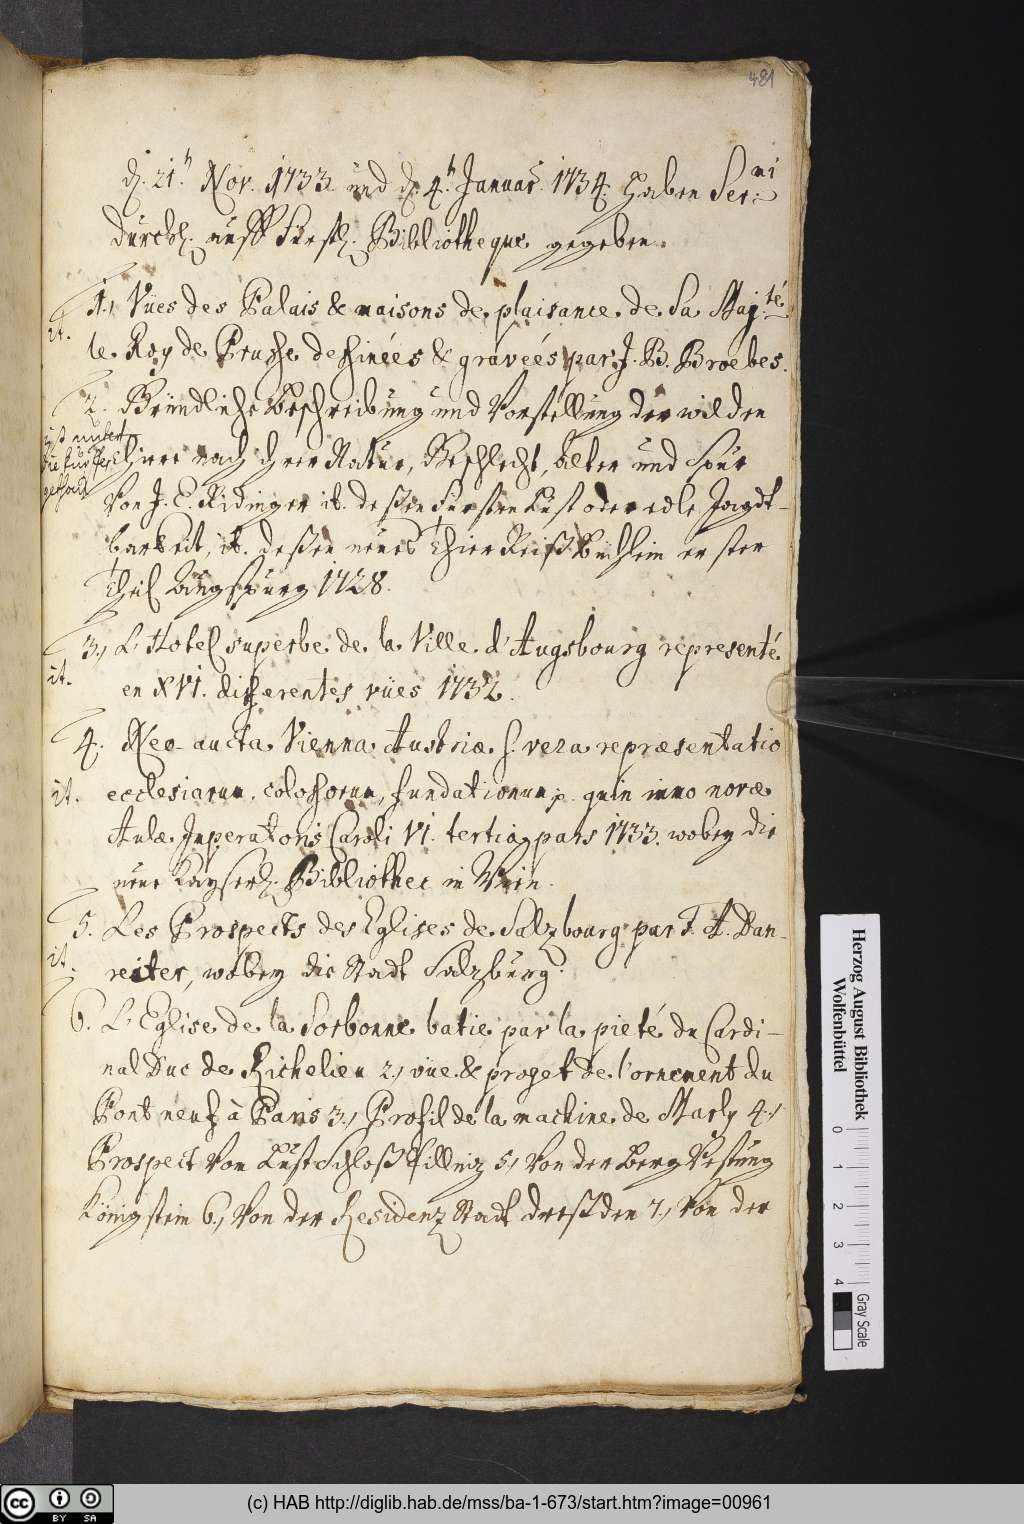 481
d. 21.ᵗ Nov. 1733 und d. 4.ᵗ Januar. 1734. haben Ser:ᵐⁱ
Durchl. auff Fürstl. Bibliotheque gegeben.
1., Vües des Palais & maisons de plaisance de Sa Maj:té
it.
le Roy de Prusse dessinées & gravéés par J. B. Broebes.
2. Gründliche Beschreibung und Vorstellung der wilden
Thiere nach ihrer Natur, Geschlecht, Alter und Spur
von J. E. Ridinger it. deßen Fürsten Lust oder edle Jagdt-
barkeit, it. deßen neues Thier Reiß Büchlein erster
Theil Augspurg 1728.
3., L'Hotel superbe de la Ville d'Augsbourg representé
it.
en XVI. differentes vües 1732.
4. Neo-aucta Vienna Austriæ s. vera repræsentatio
it.
ecclesiarum, colossorum, fundationum p. quin immo novæ
Aulæ Imperatoris Caroli VI. tertia pars 1733. wobey die
neue Kayserl. Bibliothec in Wien.
5. Les Prospects des Eglises de Salzbourg par F. A. Dan-
it.
reiter, wobey die Stadt Salzburg.
6. L'Eglise de la Sorbonne batie par la pieté du Cardi-
nal Duc de Richelieu 2., vüe & proget de l'ornement du
Pont neuf à Paris 3., Profil de la machine de Marly 4.,
Prospect vom Lust Schloß Pillniz 5., von der Berg Vestung
Königstein 6., von der Residenz Stadt Dreßden 7., von der
Herzog August Bibliothek
Wolfenbüttel
0 1 2 3 4
Gray Scale
cc BY SA
(c) HAB http://diglib.hab.de/mss/ba-1-673/start.htm?image=00961